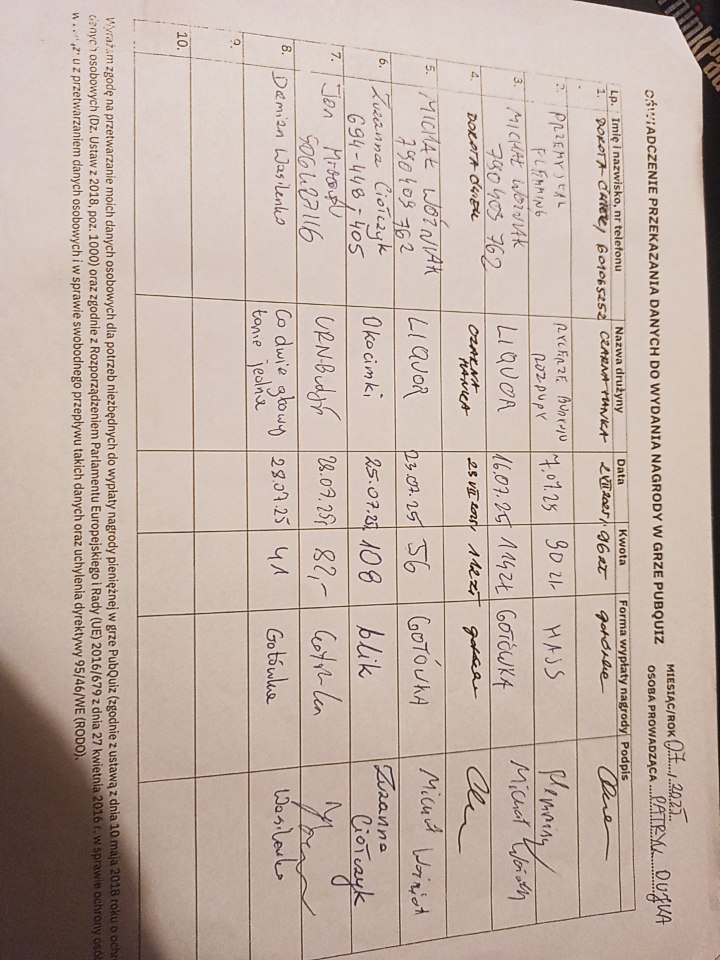 OŚWIADCZENIE PRZEKAZANIA DANYCH DO WYDANIA NAGRODY W GRZE PUBQUIZ
MIESIĄC/ROK 07.2025
OSOBA PROWADZĄCA PATRYK DUJKA
Lp. Imię i nazwisko, nr telefonu Nazwa drużyny Data Kwota Forma wypłaty nagrody Podpis
1. DOROTA 601065252 CZARNA MAŃKA 2 VII 2025r. 96 zł
2. PRZEMYSŁAW FLEMMING RYCERZE 7.07.25 90 zł HAJS Flemming
3. MICHAŁ WOŹNIAK 790 409 762 LIQUOR 16.07.25 114 zł GOTÓWKA Michał Woźniak
4. DOROTA CZARNA MAŃKA 23 VII 2025r. 112 zł
5. MICHAŁ WOŹNIAK 790 409 762 LIQUOR 23.07.25 56 GOTÓWKA Michał Woźniak
6. Zuzanna Ciółczyk 694-448-405 Okocimki 25.07.25r. 108 blik Zuzanna Ciółczyk
7. Jan 506427116 URN-Budyń 28.07.25r. 82,- Gotówka
8. Damian Wasilenko Co dwie głowy to nie jedna 28.07.25 41 Gotówka Wasilenko
9.
10.
Wyrażam zgodę na przetwarzanie moich danych osobowych dla potrzeb niezbędnych do wypłaty nagrody pieniężnej w grze PubQuiz (zgodnie z ustawą z dnia 10 maja 2018 roku o
danych osobowych (Dz. Ustaw z 2018, poz. 1000) oraz zgodnie z Rozporządzeniem Parlamentu Europejskiego i Rady (UE) 2016/679 z dnia 27 kwietnia 2016 r. w sprawie ochrony
z przetwarzaniem danych osobowych i w sprawie swobodnego przepływu takich danych oraz uchylenia dyrektywy 95/46/WE (RODO).